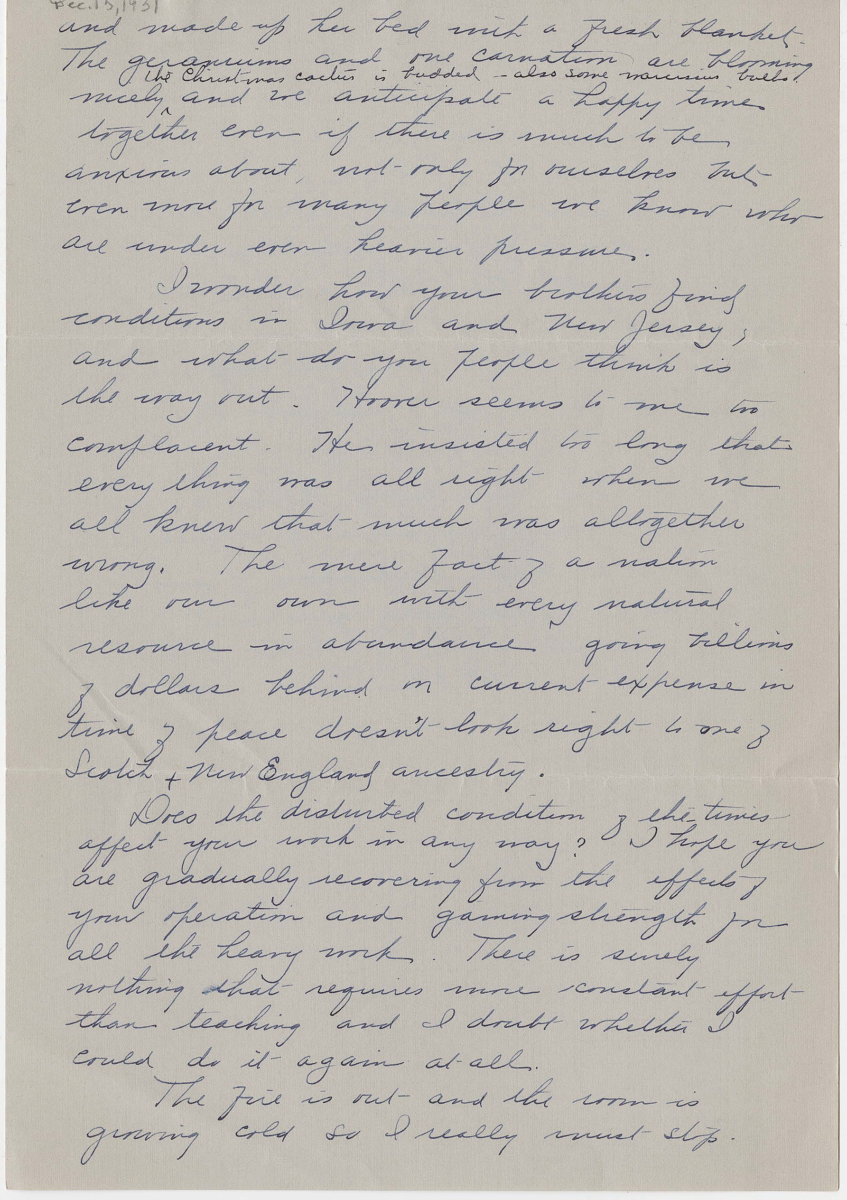 Dec. 13, 1931
and made up her bed with a fresh blanket.
The geraniums and one carnation are blooming
the Christmas cactus is budded – also some narcissus bulbs.
nicely ^ and we anticipate a happy time
together even if there is much to be
anxious about, not only for ourselves but
even more for many people we know who
are under even heavier pressure.
I wonder how your brothers find
conditions in Iowa and New Jersey,
and what do you people think is
the way out. Hoover seems to me too
complacent. He insisted too long that
every thing was all right when we
all knew that much was altogether
wrong. The mere fact of a nation
like our own with every natural
resource in abundance going billions
of dollars behind on current expense in
time of peace doesn't look right to one of
Scotch + New England ancestry.
Does the disturbed condition of the times
affect your work in any way? I hope you
are gradually recovering from the effects of
your operation and gaining strength for
all the heavy work. There is surely
nothing that requires more constant effort
than teaching and I doubt whether I
could do it again at all.
The fire is out and the room is
growing cold so I really must stop.